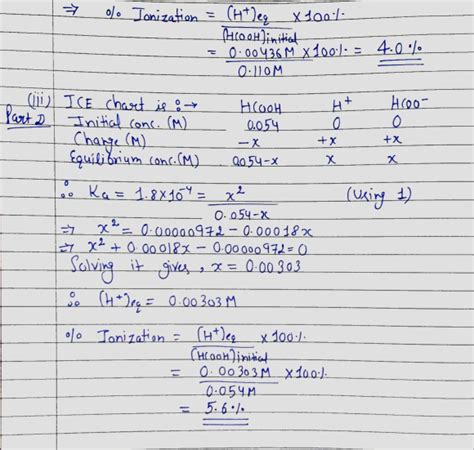 ⇒ % Ionization = (H⁺)eq / (HCOOH)initial × 100%
= 0.00436M / 0.110M × 100% = 4.0%
(iii) ICE chart is :→ HCOOH H⁺ HCOO⁻
Part D Initial conc. (M) 0.054 0 0
Change (M) -x +x +x
Equilibrium conc. (M) 0.054-x x x
∴ Ka = 1.8×10⁻⁴ = x² / 0.054-x (Using 1)
⇒ x² = 0.00000972 - 0.00018x
⇒ x² + 0.00018x - 0.00000972 = 0
Solving it gives, x = 0.00303
∴ (H⁺)eq = 0.00303M
% Ionization = (H⁺)eq / (HCOOH)initial × 100%
= 0.00303M / 0.054M × 100%
= 5.6%